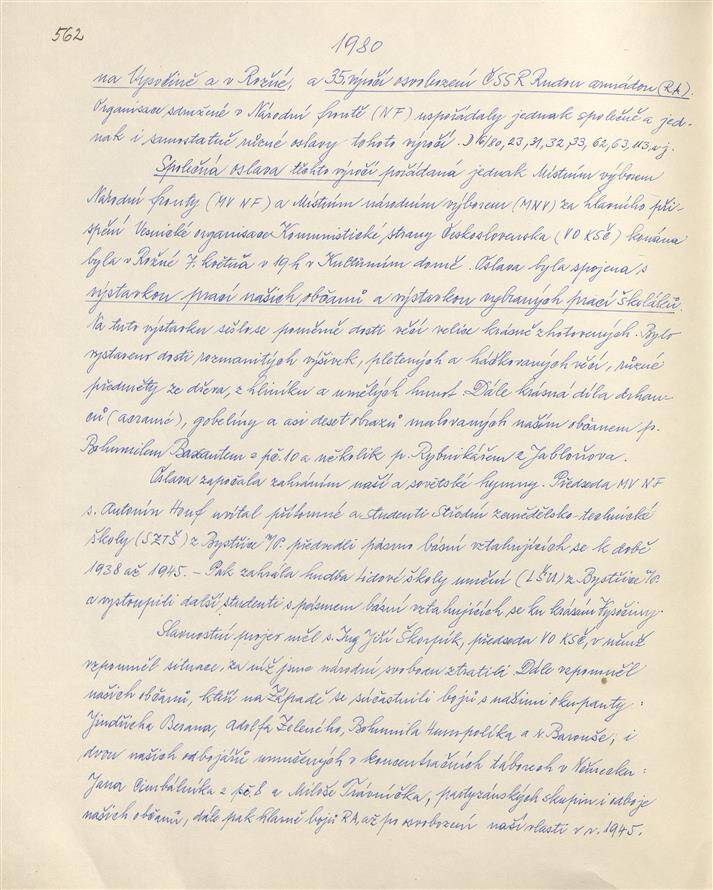 562
1980
na Vysočině a v Rožné, a 35. výročí osvobození ČSSR Rudou armádou (RA).
Organisace sdružené v Národní frontě (NF) uspořádaly jednak společně a jed-
nak i samostatně různé oslavy tohoto výročí. D 16/80, 23, 31, 32, 33, 62, 63, 113, a j.
Společná oslava těchto výročí pořádaná jednak Místním výborem
Národní fronty (MV NF) a Místním národním výborem (MNV) za hlavního při-
spění Vesnické organisace Komunistické strany Československa (VO KSČ) konána
byla v Rožné 7. května v 19 h v Kulturním domě. Oslava byla spojena s
výstavkou prací našich občanů a výstavkou vybraných prací školáků.
Na tuto výstavku sešlo se poměrně dosti věcí velice krásně zhotovených. Bylo
vystaveno dosti rozmanitých výšivek, pletených a háčkovaných věcí, různé
předměty ze dřeva, z hliníku a umělých hmot. Dále krásná díla drhan-
ců (acramé), gobelíny a asi deset obrazů malovaných naším občanem p.
Bohumilem Baxantem z pč. 10 a několik p. Rybnikářem z Jabloňova.
Oslava započala zahráním naší a sovětské hymny. Předseda MV NF
s. Antonín Houf uvítal přítomné a studenti Střední zemědělsko-technické
školy (SZTŠ) z Bystřice n/P. předvedli pásmo básní vztahujících se k době
1938 až 1945. – Pak zahrála hudba Lidové školy umění (LŠU) z Bystřice n/P.
a vystoupili další studenti s pásmem básní vztahujících se ku krásám Vysočiny.
Slavnostní projev měl s. Ing Jiří Škorpík, předseda VO KSČ, v němž
vzpomněl situace, za níž jsme národní svobodu ztratili. Dále vzpomněl
našich občanů, kteří na Západě se súčastnili bojů s našimi okupanty:
Jindřicha Berana, Adolfa Zeleného, Bohumila Humpolíka a r. Barouše, i
dvou našich odbojářů umučených v koncentračních táborech v Německu:
Jana Cimbálníka z pč. 8 a Miloše Trávníčka, partyzánských skupin i odboje
našich občanů, dále pak hlavně bojů RA, až po osvobození naší vlasti v r. 1945.